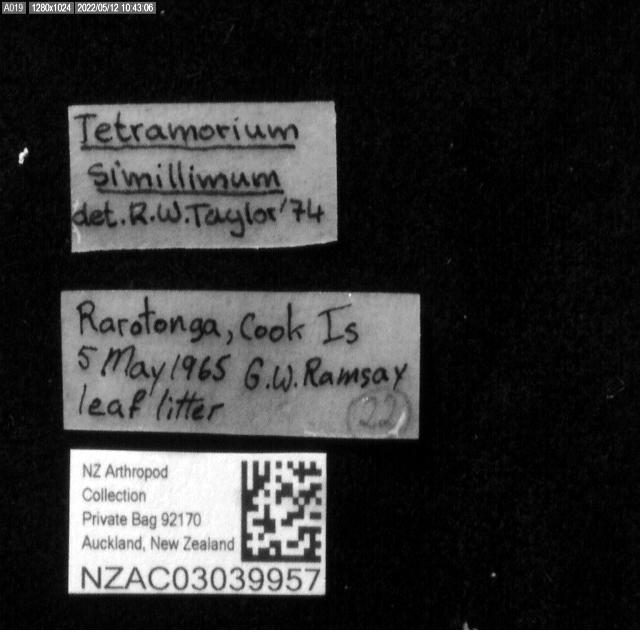 A019 1280x1024 2022/05/12 10:43:06
Tetramorium
simillimum
det. R.W. Taylor '74
Rarotonga, Cook Is
5 May 1965 G.W. Ramsay
leaf litter
22
NZ Arthropod
Collection
Private Bag 92170
Auckland, New Zealand
NZAC03039957